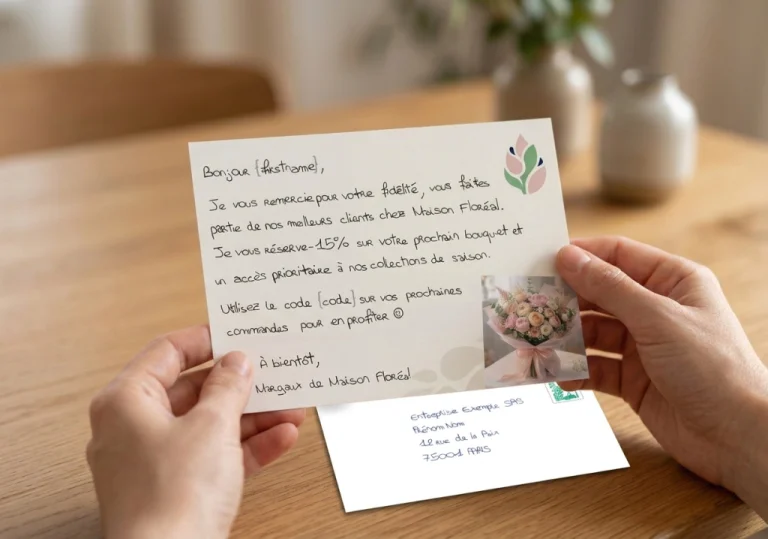 Bonjour {firstname},
Je vous remercie pour votre fidélité, vous faites
partie de nos meilleurs clients chez Maison Floréal.
Je vous réserve -15% sur votre prochain bouquet et
un accès prioritaire à nos collections de saison.
Utilisez le code {code} sur vos prochaines
commandes pour en profiter ☺
À bientôt,
Margaux de Maison Floréal
Entreprise Exemple SAS
Prénom Nom
12 rue de la Paix
75001 PARIS